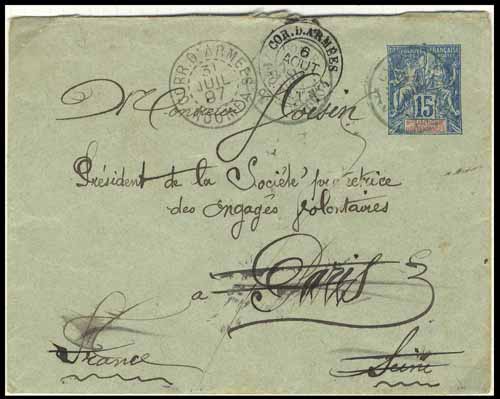 CORR. D. ARMEES
31
JUIL
97
COR. D. ARMÉES
6
AOUT
RÉPUBLIQUE FRANÇAISE
15
Monsieur
Président de la Société protectrice
des engagés volontaires
à Paris
France
Seine